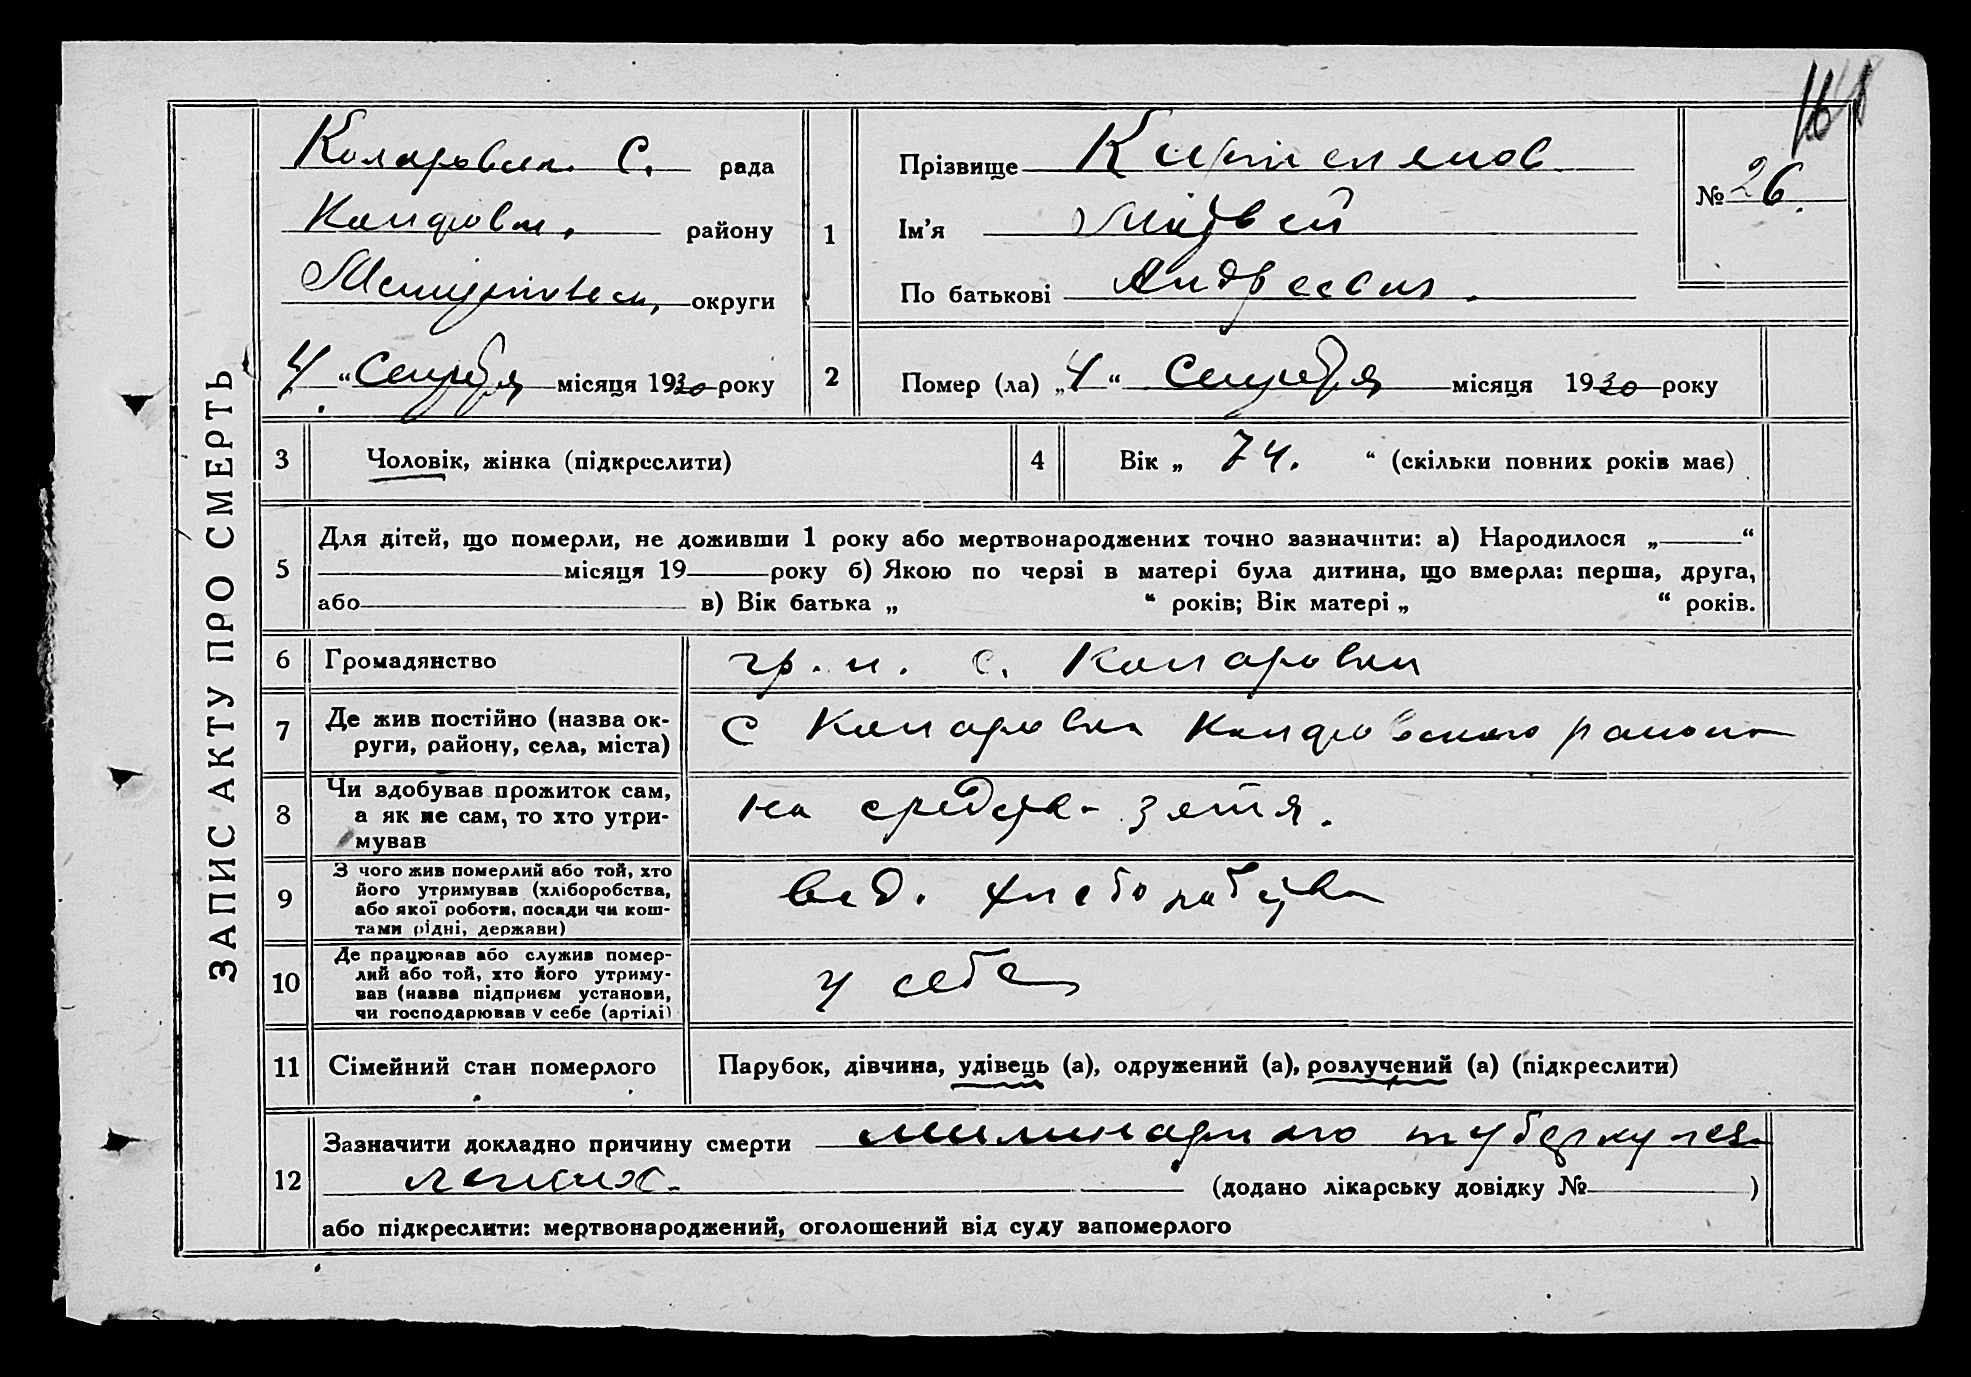 ЗАПИС АКТУ ПРО СМЕРТЬ
168
Коларовск. С. рада
району
округи
4 " Сентября місяця 1930 року
1
Прізвище
Ім'я Матвей
По батькові Андреевич.
№ 26.
2
Помер (ла) „4" Сентября місяця 1930 року
3 Чоловік, жінка (підкреслити)
4 Вік „ 74. " (скільки повних років має)
5
Для дітей, що померли, не доживши 1 року або мертвонароджених точно зазначити: а) Народилося „ "
місяця 19 року б) Якою по черзі в матері була дитина, що вмерла: перша, друга,
або в) Вік батька „ " років; Вік матері „ " років.
6 Громадянство гр. н. с. Коларовки
7 Де жив постійно (назва ок-
руги, району, села, міста)
с Коларовка района
8 Чи здобував прожиток сам,
а як не сам, то хто утри-
мував
на средства зятя.
9 З чого жив померлий або той, хто
його утримував (хліборобства,
або якої роботи, посади чи кош-
тами рідні, держави)
вед. хлеборобства
10 Де працював або служив помер-
лий або той, хто його утриму-
вав (назва підприєм установи,
чи господарював у себе (артілі)
у себе
11 Сімейний стан померлого Парубок, дівчина, удівець (а), одружений (а), розлучений (а) (підкреслити)
12
Зазначити докладно причину смерти туберкулеза
легких. (додано лікарську довідку № )
або підкреслити: мертвонароджений, оголошений від суду запомерлого